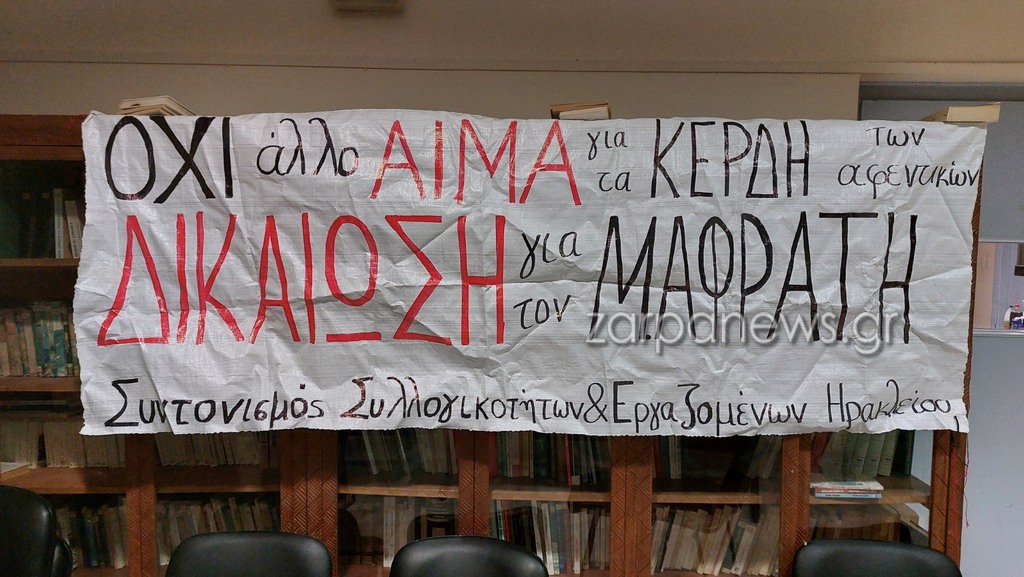 ΟΧΙ άλλο ΑΙΜΑ για τα ΚΕΡΔΗ των αφεντικών
ΔΙΚΑΙΩΣΗ για τον Μ.ΑΦΡΑΤΗ
zarpanews.gr
Συντονισμός Συλλογικοτήτων & Εργαζομένων Ηρακλείου